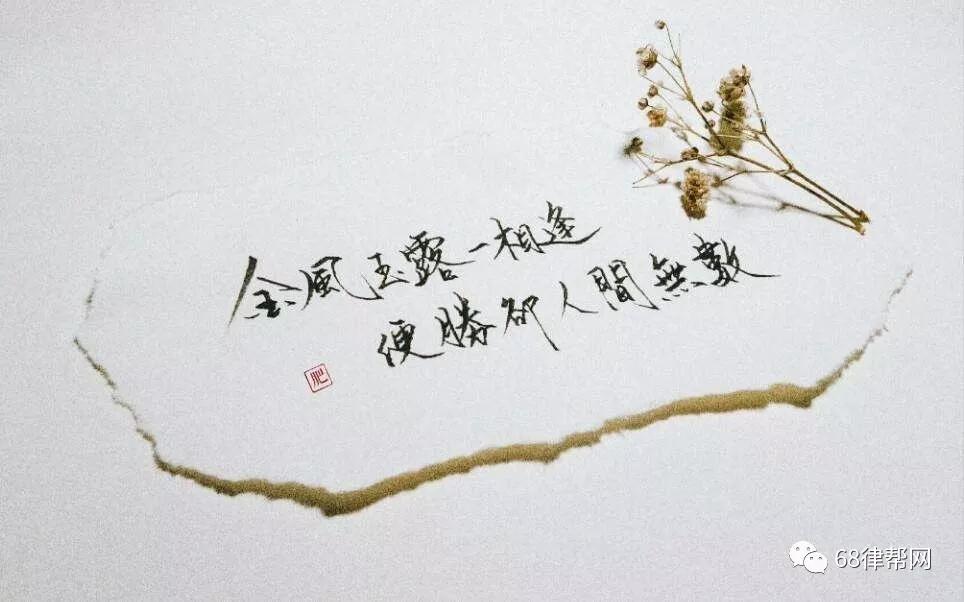 金風玉露一相逢
便勝卻人間無數
肥
68律帮网